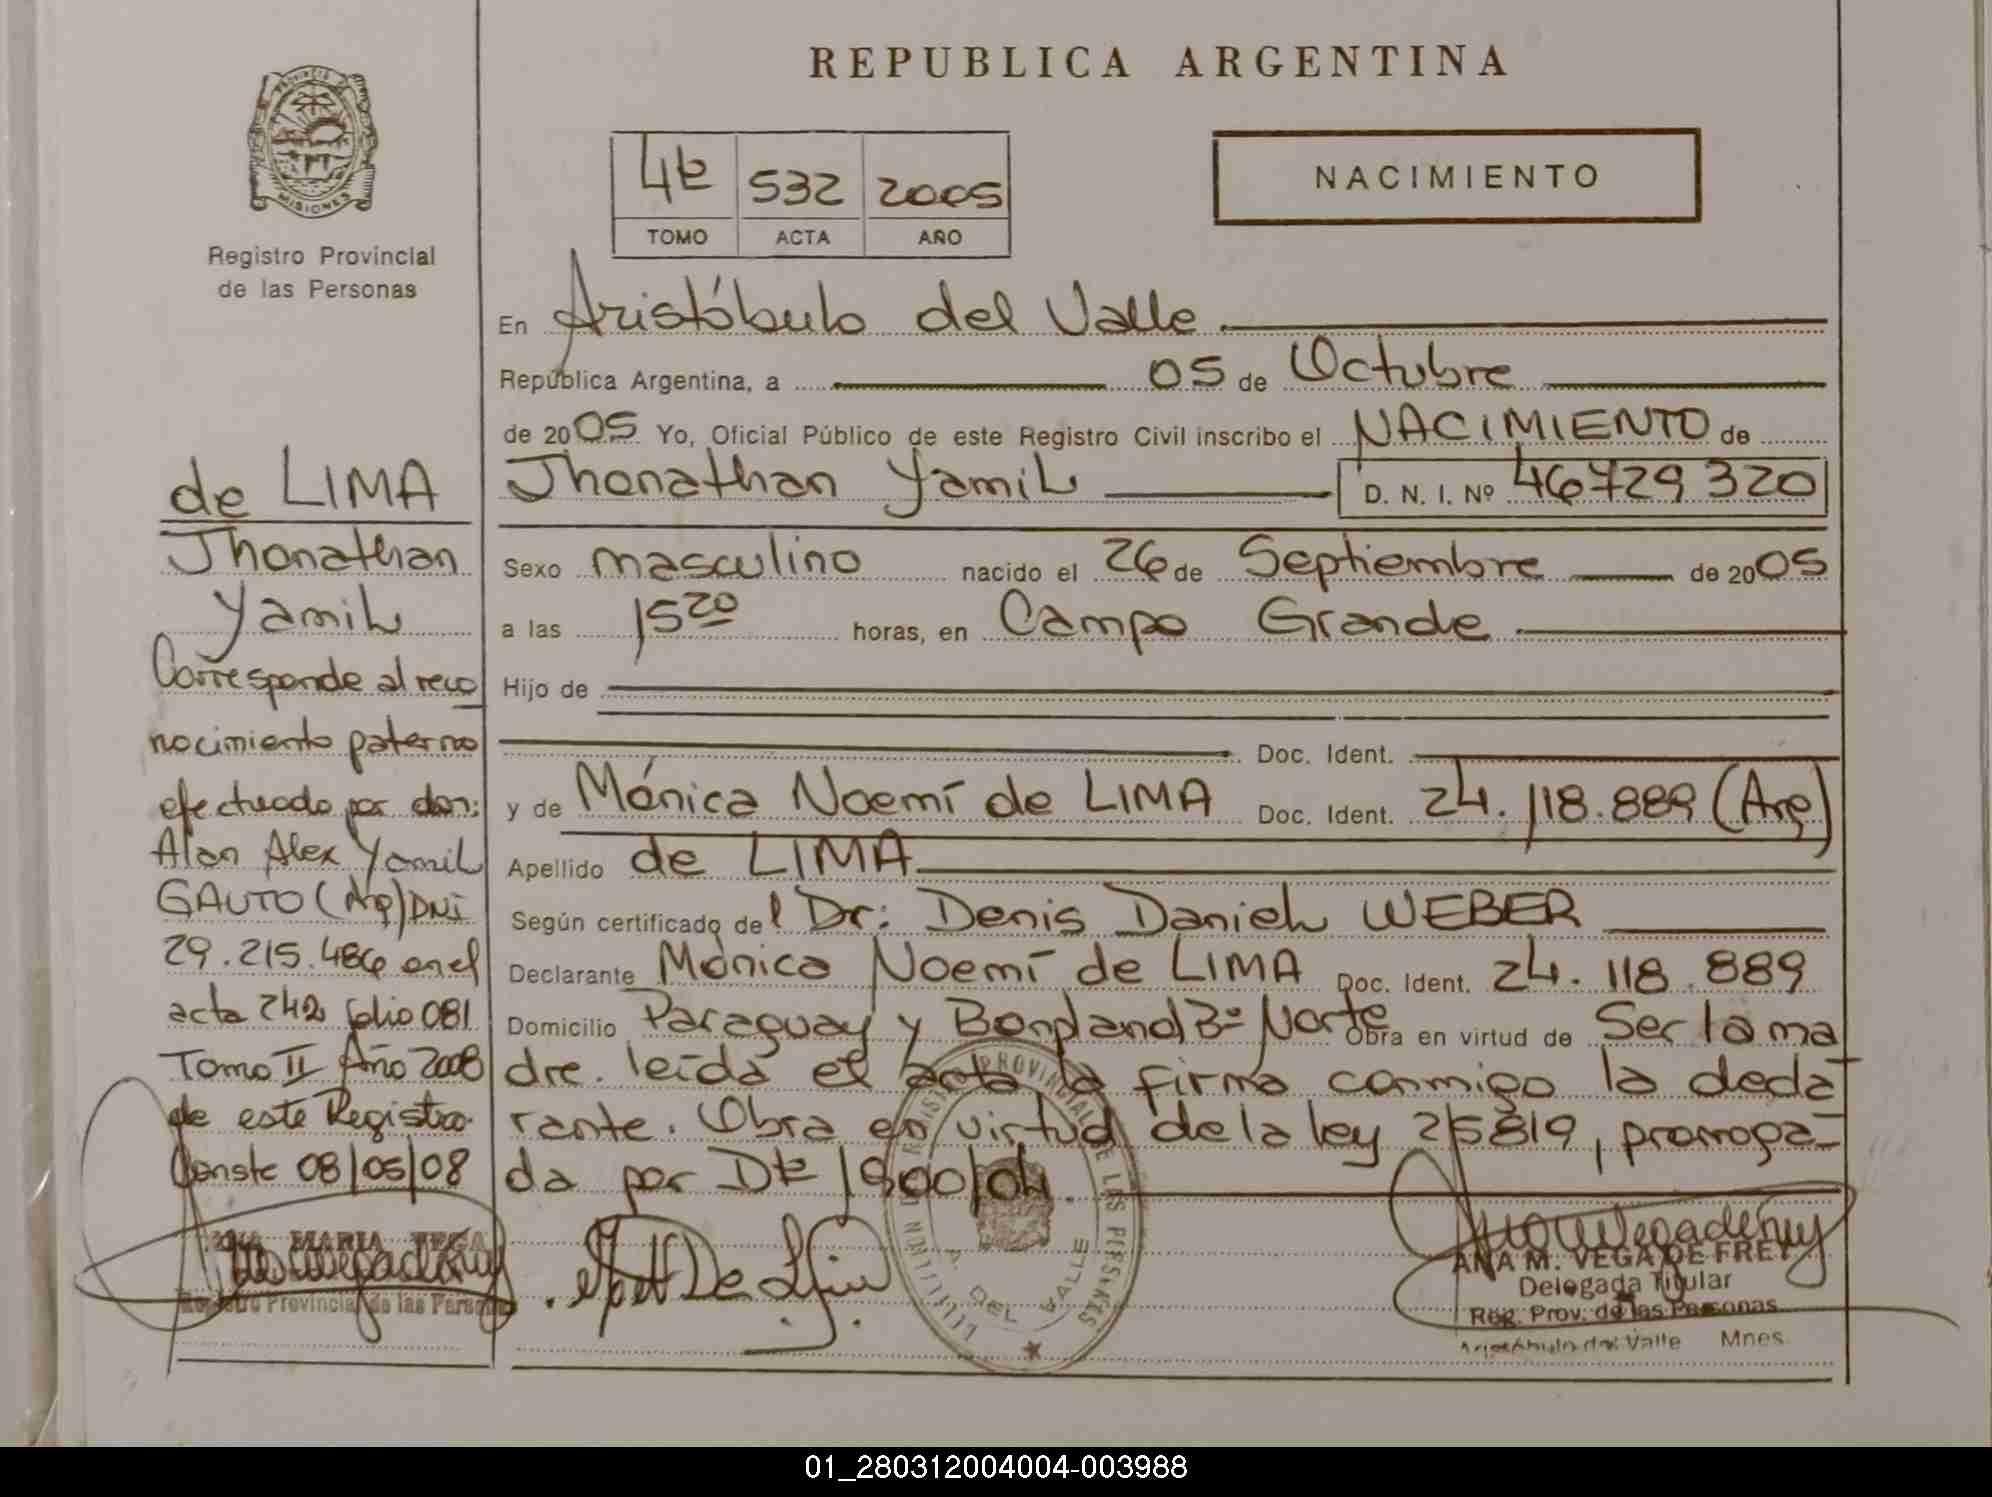 REPUBLICA ARGENTINA
PROVINCIA DE
MISIONES
Registro Provincial
de las Personas
4to 532 2005
TOMO ACTA AÑO
NACIMIENTO
En Aristóbulo del Valle
República Argentina, a 05 de Octubre
de 2005 Yo, Oficial Público de este Registro Civil inscribo el NACIMIENTO de
Jhonathan Yamil D. N. I. Nº 46729320
Sexo masculino nacido el 26 de Septiembre de 2005
a las 15 20 horas, en Campo Grande
Hijo de
Doc. Ident.
y de Mónica Noemí de LIMA Doc. Ident. 24.118.889 (Arg)
Apellido de LIMA
Según certificado del Dr: Denis Daniel WEBER
Declarante Mónica Noemí de LIMA Doc. Ident. 24.118.889
Domicilio Paraguay y Bonpland Bº Norte Obra en virtud de Ser la ma
dre. leída el acta la firma conmigo la decla
rante. Obra en virtud de la ley 25819, prorroga-
da por Dto 1900/04.
de LIMA
Jhonathan
Yamil
Corresponde al reco
nocimiento paterno
efectuado por don:
Alan Alex Yamil
GAUTO (Arg) DNI
29.215.486 en el
acta 242 folio 081
Tomo II Año 2008
de este Registro.
Conste 08/05/08
ANA MARIA VEGA
Registro Provincial de las Personas
REGISTRO PROVINCIAL DE LAS PERSONAS
A. DEL VALLE
ANA M. VEGA DE FREY
Delegada Titular
Reg. Prov. de las Personas
Aristóbulo del Valle Mnes
01_280312004004-003988